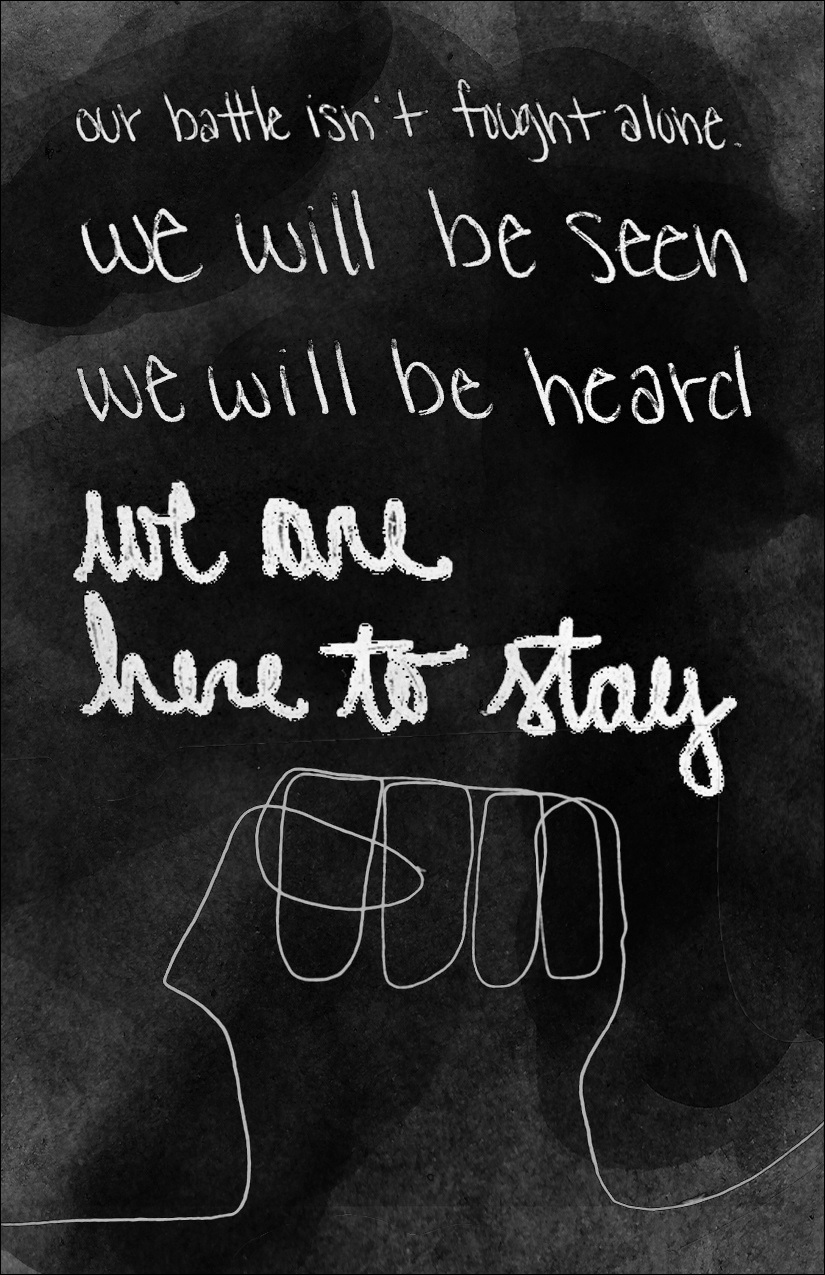 our battle isn't fought alone.
we will be seen
we will be heard
we are
here to stay